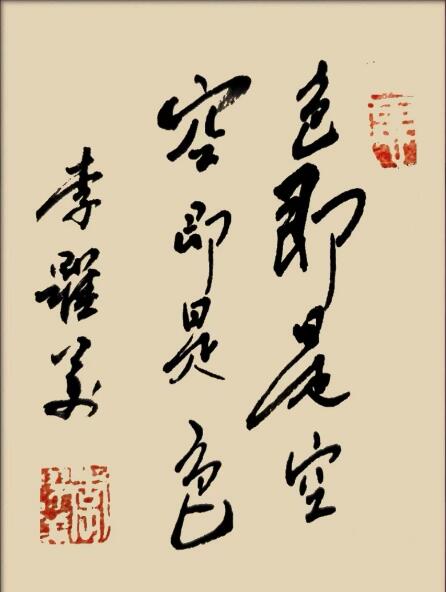 色即是空
空即是色
李耀美